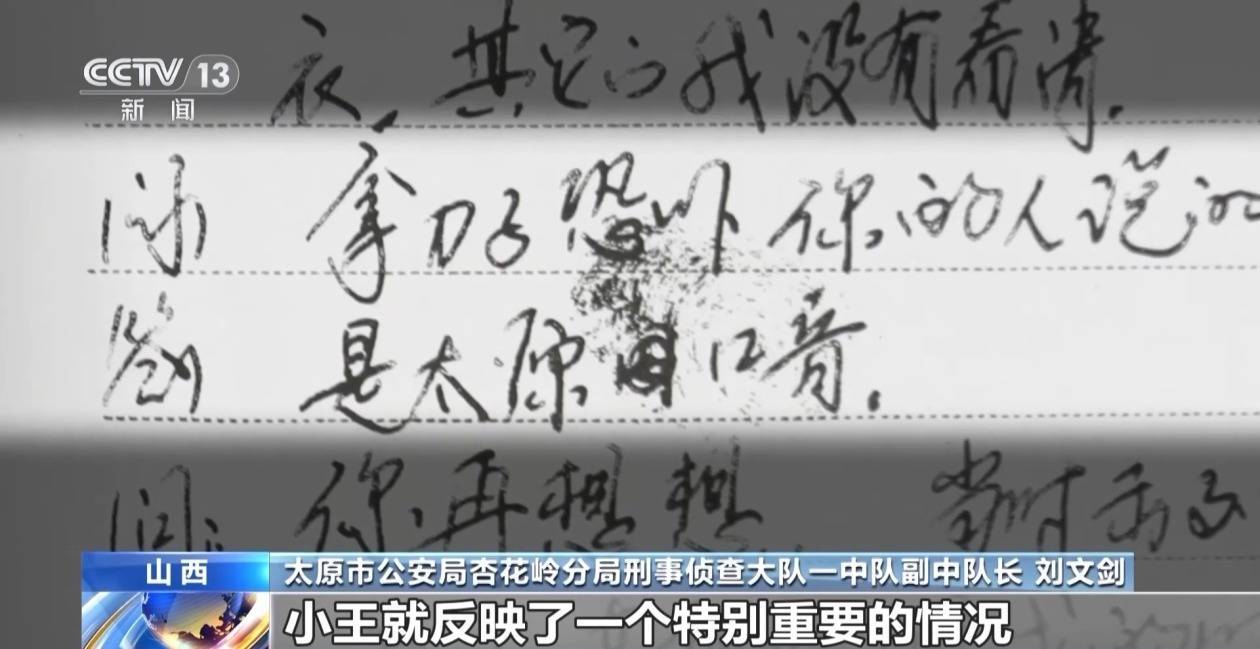 CCTV 13
新闻
衣，其它的我没有看清．
问 拿刀子恐吓你的人说的
答 是太原口音．
问：你再想想 当时
山西
太原市公安局杏花岭分局刑事侦查大队一中队副中队长 刘文剑
小王就反映了一个特别重要的情况